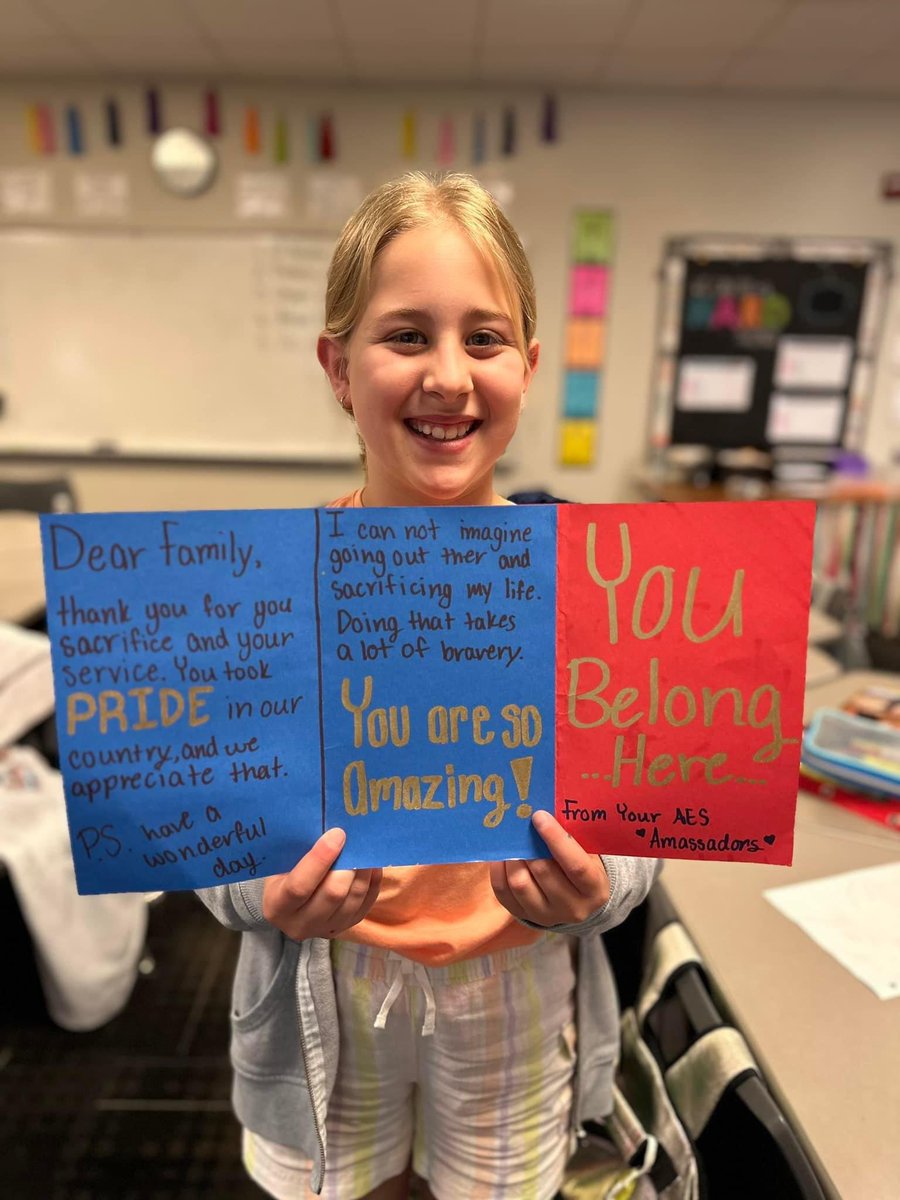 Dear Family,
thank you for you
sacrifice and your
service. You took
PRIDE in our
country, and we
appreciate that.
P.S. have a
wonderful
day.
I can not imagine
going out ther and
sacrificing my life.
Doing that takes
a lot of bravery.
You are so
Amazing!
You
Belong
...Here...
From Your AES
♥Amassadors♥